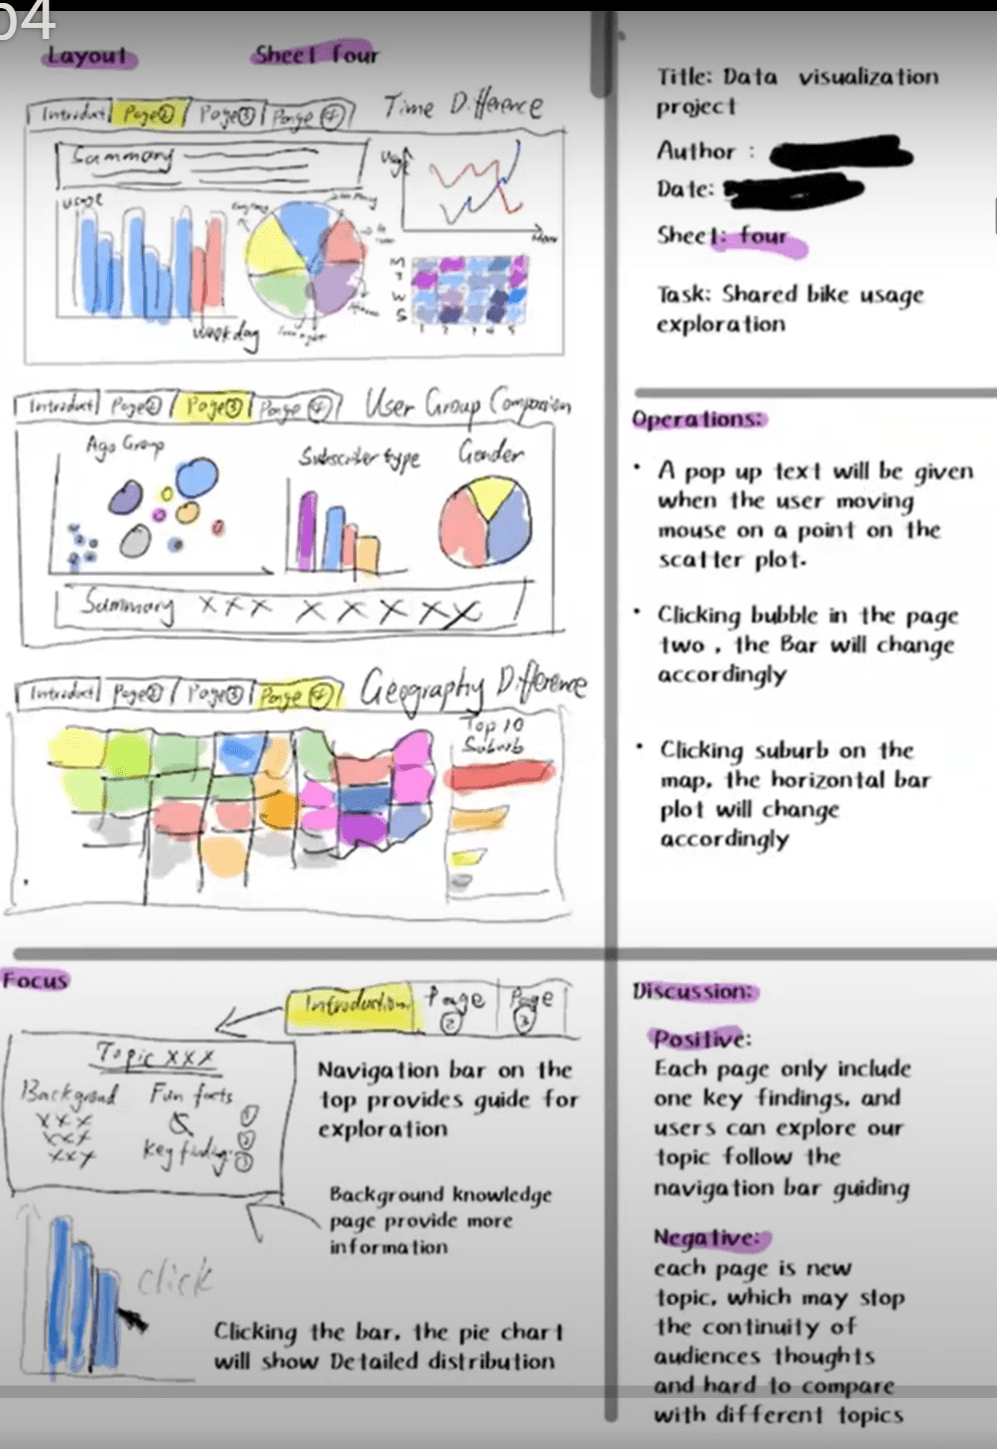 04
Layout
Sheet four
Introduct Page② Page③ Page④ Time Difference
Summary
usage
weekday
M
T
W
S
1 2 3 4 5
Introduct Page② Page③ Page④ User Group Comparsion
Age Group
Subscriber type
Gender
Summary XXX XXXXX
Introduct Page② Page③ Page④ Geography Difference
Top 10
Suburb
Title: Data visualization
project
Author :
Date:
Sheet: four
Task: Shared bike usage
exploration
Operations:
• A pop up text will be given
when the user moving
mouse on a point on the
scatter plot.
• Clicking bubble in the page
two , the Bar will change
accordingly
• Clicking suburb on the
map, the horizontal bar
plot will change
accordingly
Focus
Introduction Page ② Page ③
Topic XXX
Background
XXX
XXX
XXY
Fun facts
&
key findings
①
②
③
Navigation bar on the
top provides guide for
exploration
Background knowledge
page provide more
information
click
Clicking the bar, the pie chart
will show Detailed distribution
Discussion:
Positive:
Each page only include
one key findings, and
users can explore our
topic follow the
navigation bar guiding
Negative:
each page is new
topic, which may stop
the continuity of
audiences thoughts
and hard to compare
with different topics